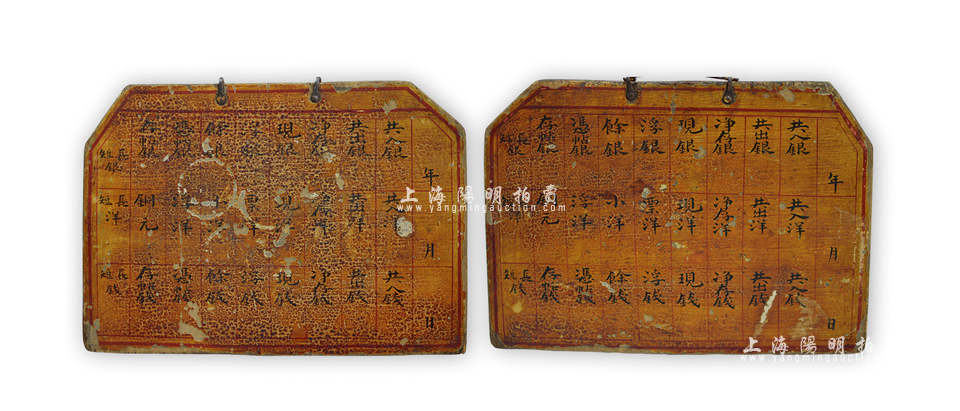 年 月 日
共入銀 共入洋 共入錢
共出銀 共出洋 共出錢
净存銀 净存洋 净存錢
現銀 現洋 現錢
銀 票洋 浮錢
餘銀 洋 餘錢
憑帖銀 浮洋 憑帖錢
存帖銀 銅元 存帖錢
長短銀 長短洋 長短錢
年 月 日
共入銀 共入洋 共入錢
共出銀 共出洋 共出錢
净存銀 净存洋 净存錢
現銀 現洋 現錢
浮銀 票洋 浮錢
餘銀 小洋 餘錢
憑帖銀 浮洋 憑帖錢
存帖銀 元 存帖錢
長短銀 長短錢
上海陽明拍賣
www.yangmingauction.com
上海陽明拍
www.yangmingaucti